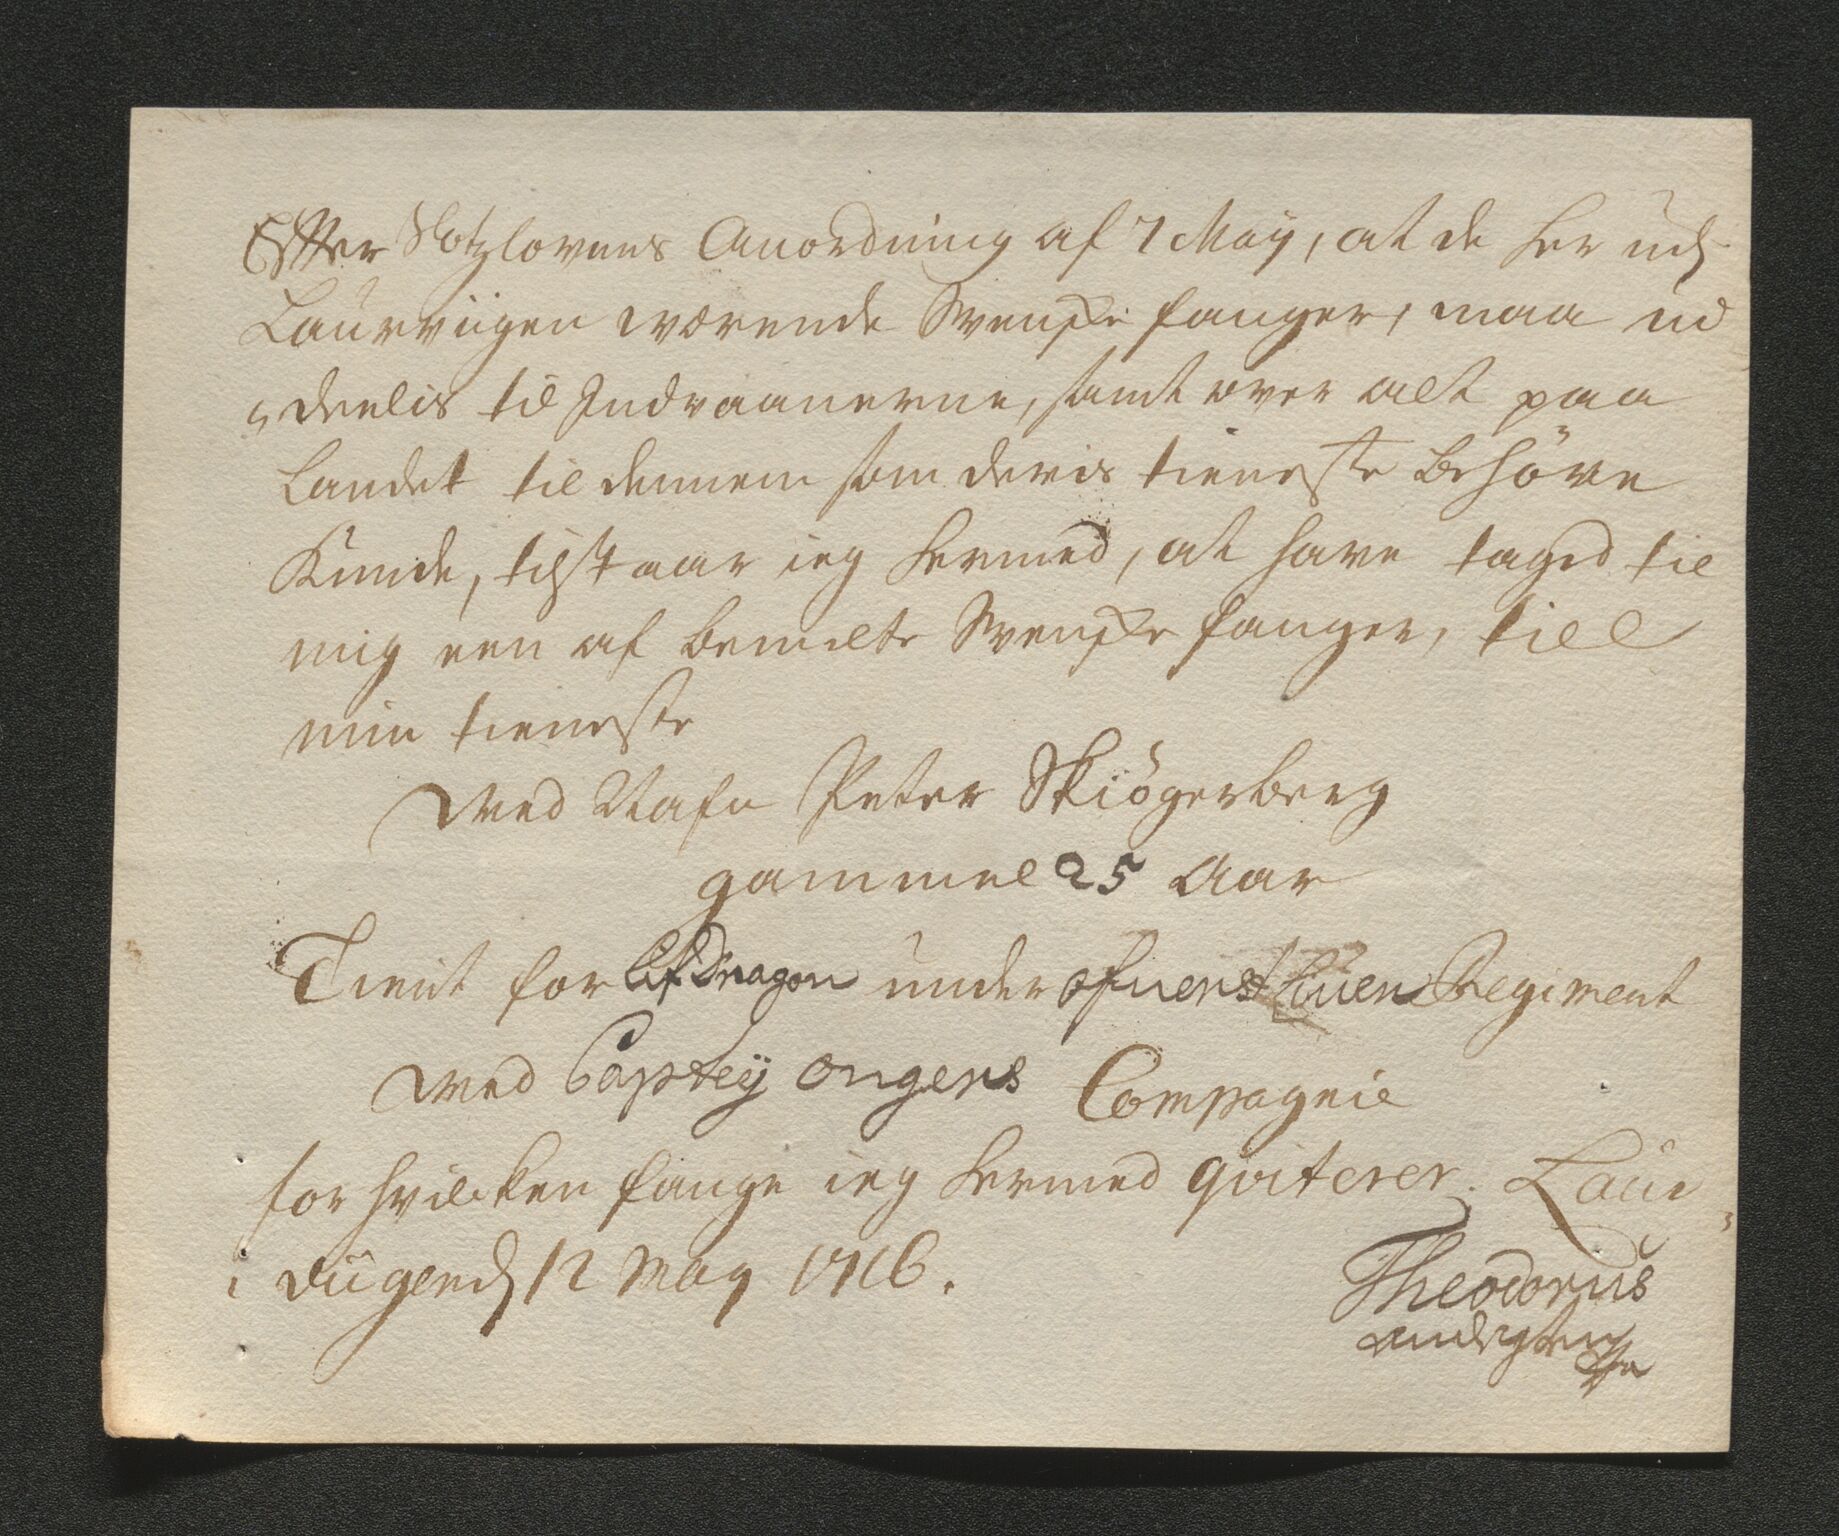 Efter Slotzlovens Anordning af 7 May, at de her udj
Laurviigen værende Svenske fanger, maa ud
deelis til Indvaanerne, samt over alt paa
Landet til dennem som deris tieneste behöve
Kunde, tilstaar ieg hermed, at have taged til
mig een af bemelte Svenske fanger, till
min tieneste
ved Nafn Peter Skiögerberg
gammel 25 Aar
Tient for Lif Dragon under ofuerst Regiment
ved Captey ongers Compagnie
for hvilcken fange ieg hermed qviterer. Laur
viigen dj 12 May 1716.
Theodorus